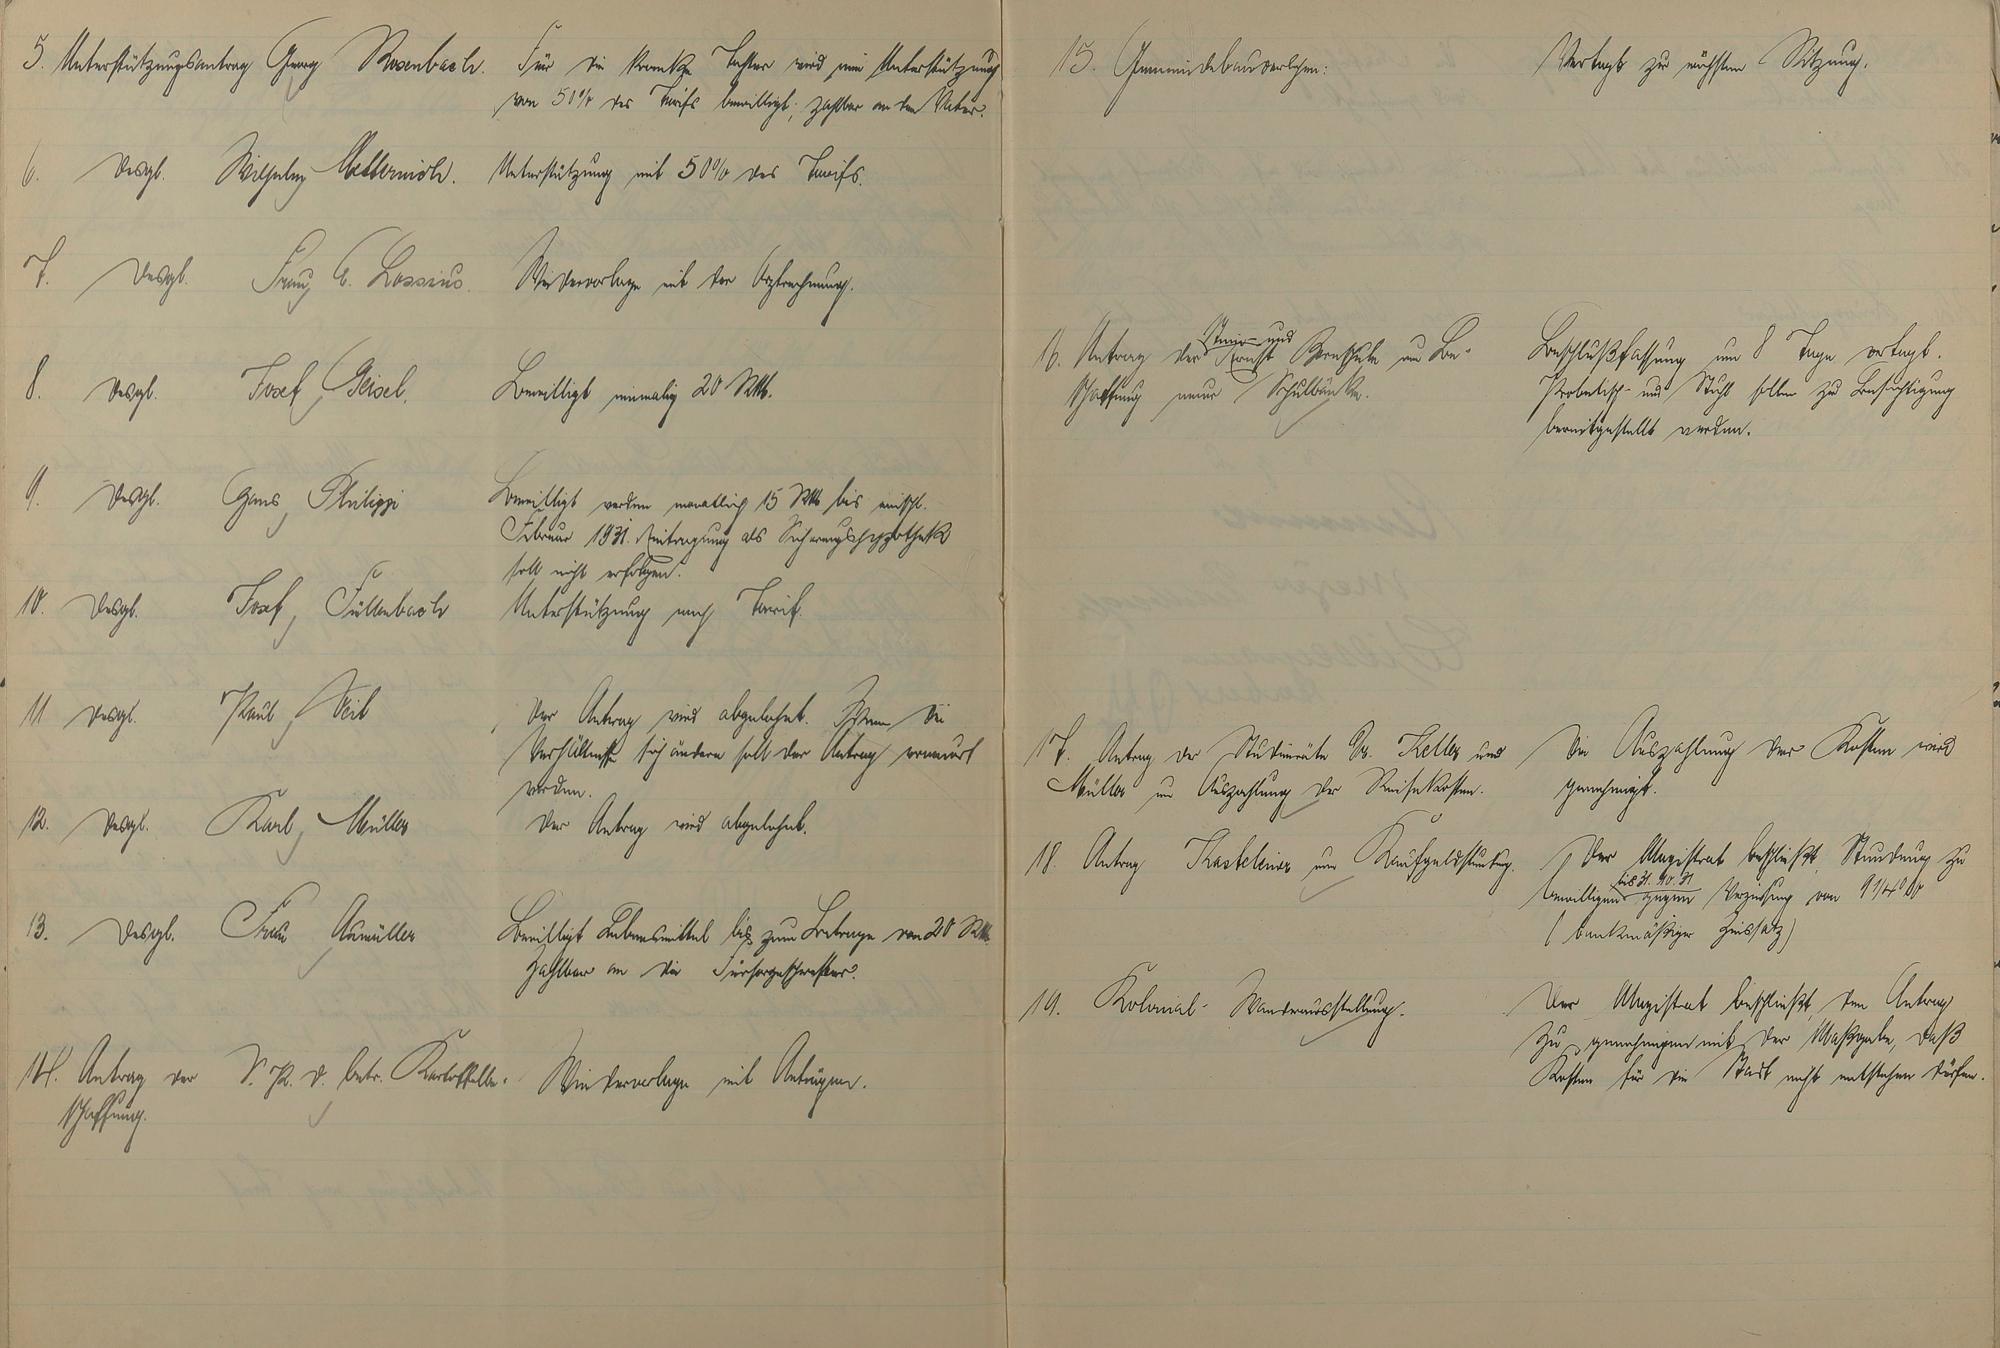 5. Unterstützungsantrag Georg Rosenbach. Für die kranke Tochter wird eine Unterstützung
von 50% des Tarifs bewilligt, zahlbar an den Vater.
6. Desgl. Wilhelm Metternich. Unterstützung mit 50% des Tarifs.
7. Desgl. Frau C. Lossius. Wiedervorlage mit der Arztrechnung.
8. Desgl. Josef Geisel. Bewilligt einmalig 20 RMk.
9. Desgl. Hans Philippi Bewilligt werden monatlich 15 RMk bis einschl.
Februar 1931. Eintragung als Sicherungshypothek
soll nicht erfolgen.
10. Desgl. Josef Füllenbach Unterstützung nach Tarif.
11 Desgl. Paul Veit Der Antrag wird abgelehnt. Wenn die
Verhältnisse sich ändern soll der Antrag erneuert
werden.
12. Desgl. Karl Müller Der Antrag wird abgelehnt.
13. Desgl. Frau Aumüller Bewilligt Lebensmittel bis zum Betrage von 20 RMk
zahlbar an die Fürsorgeschwester.
14. Antrag der betr. Kartoffelbe- Wiedervorlage mit Anträgen.
schaffung.
15. Gemeindebaudarlehen: Vertagt zur nächsten Sitzung.
16. Antrag der Stein- und Ernst Bornschule um Be- Beschlußfassung um 8 Tage vertagt.
schaffung neuer Schulbänke. Probetisch- und Stuhl sollen zur Besichtigung
bereitgestellt werden.
17. Antrag der Studienräte Dr. Keller und Die Auszahlung der Kosten wird
Müller um Auszahlung der Reisekosten. genehmigt.
18. Antrag Kasteleiner um Kaufgeldstundung. Der Magistrat beschließt, Stundung zu
bewilligen bis 31.10.31 gegen Verzinsung von 9 1/4 %
(bankmäßiger Zinssatz)
19. Kolonial- Wanderausstellung. Der Magistrat beschließt, den Antrag
zu genehmigen mit der Maßgabe, daß
Kosten für die Stadt nicht entstehen dürfen.